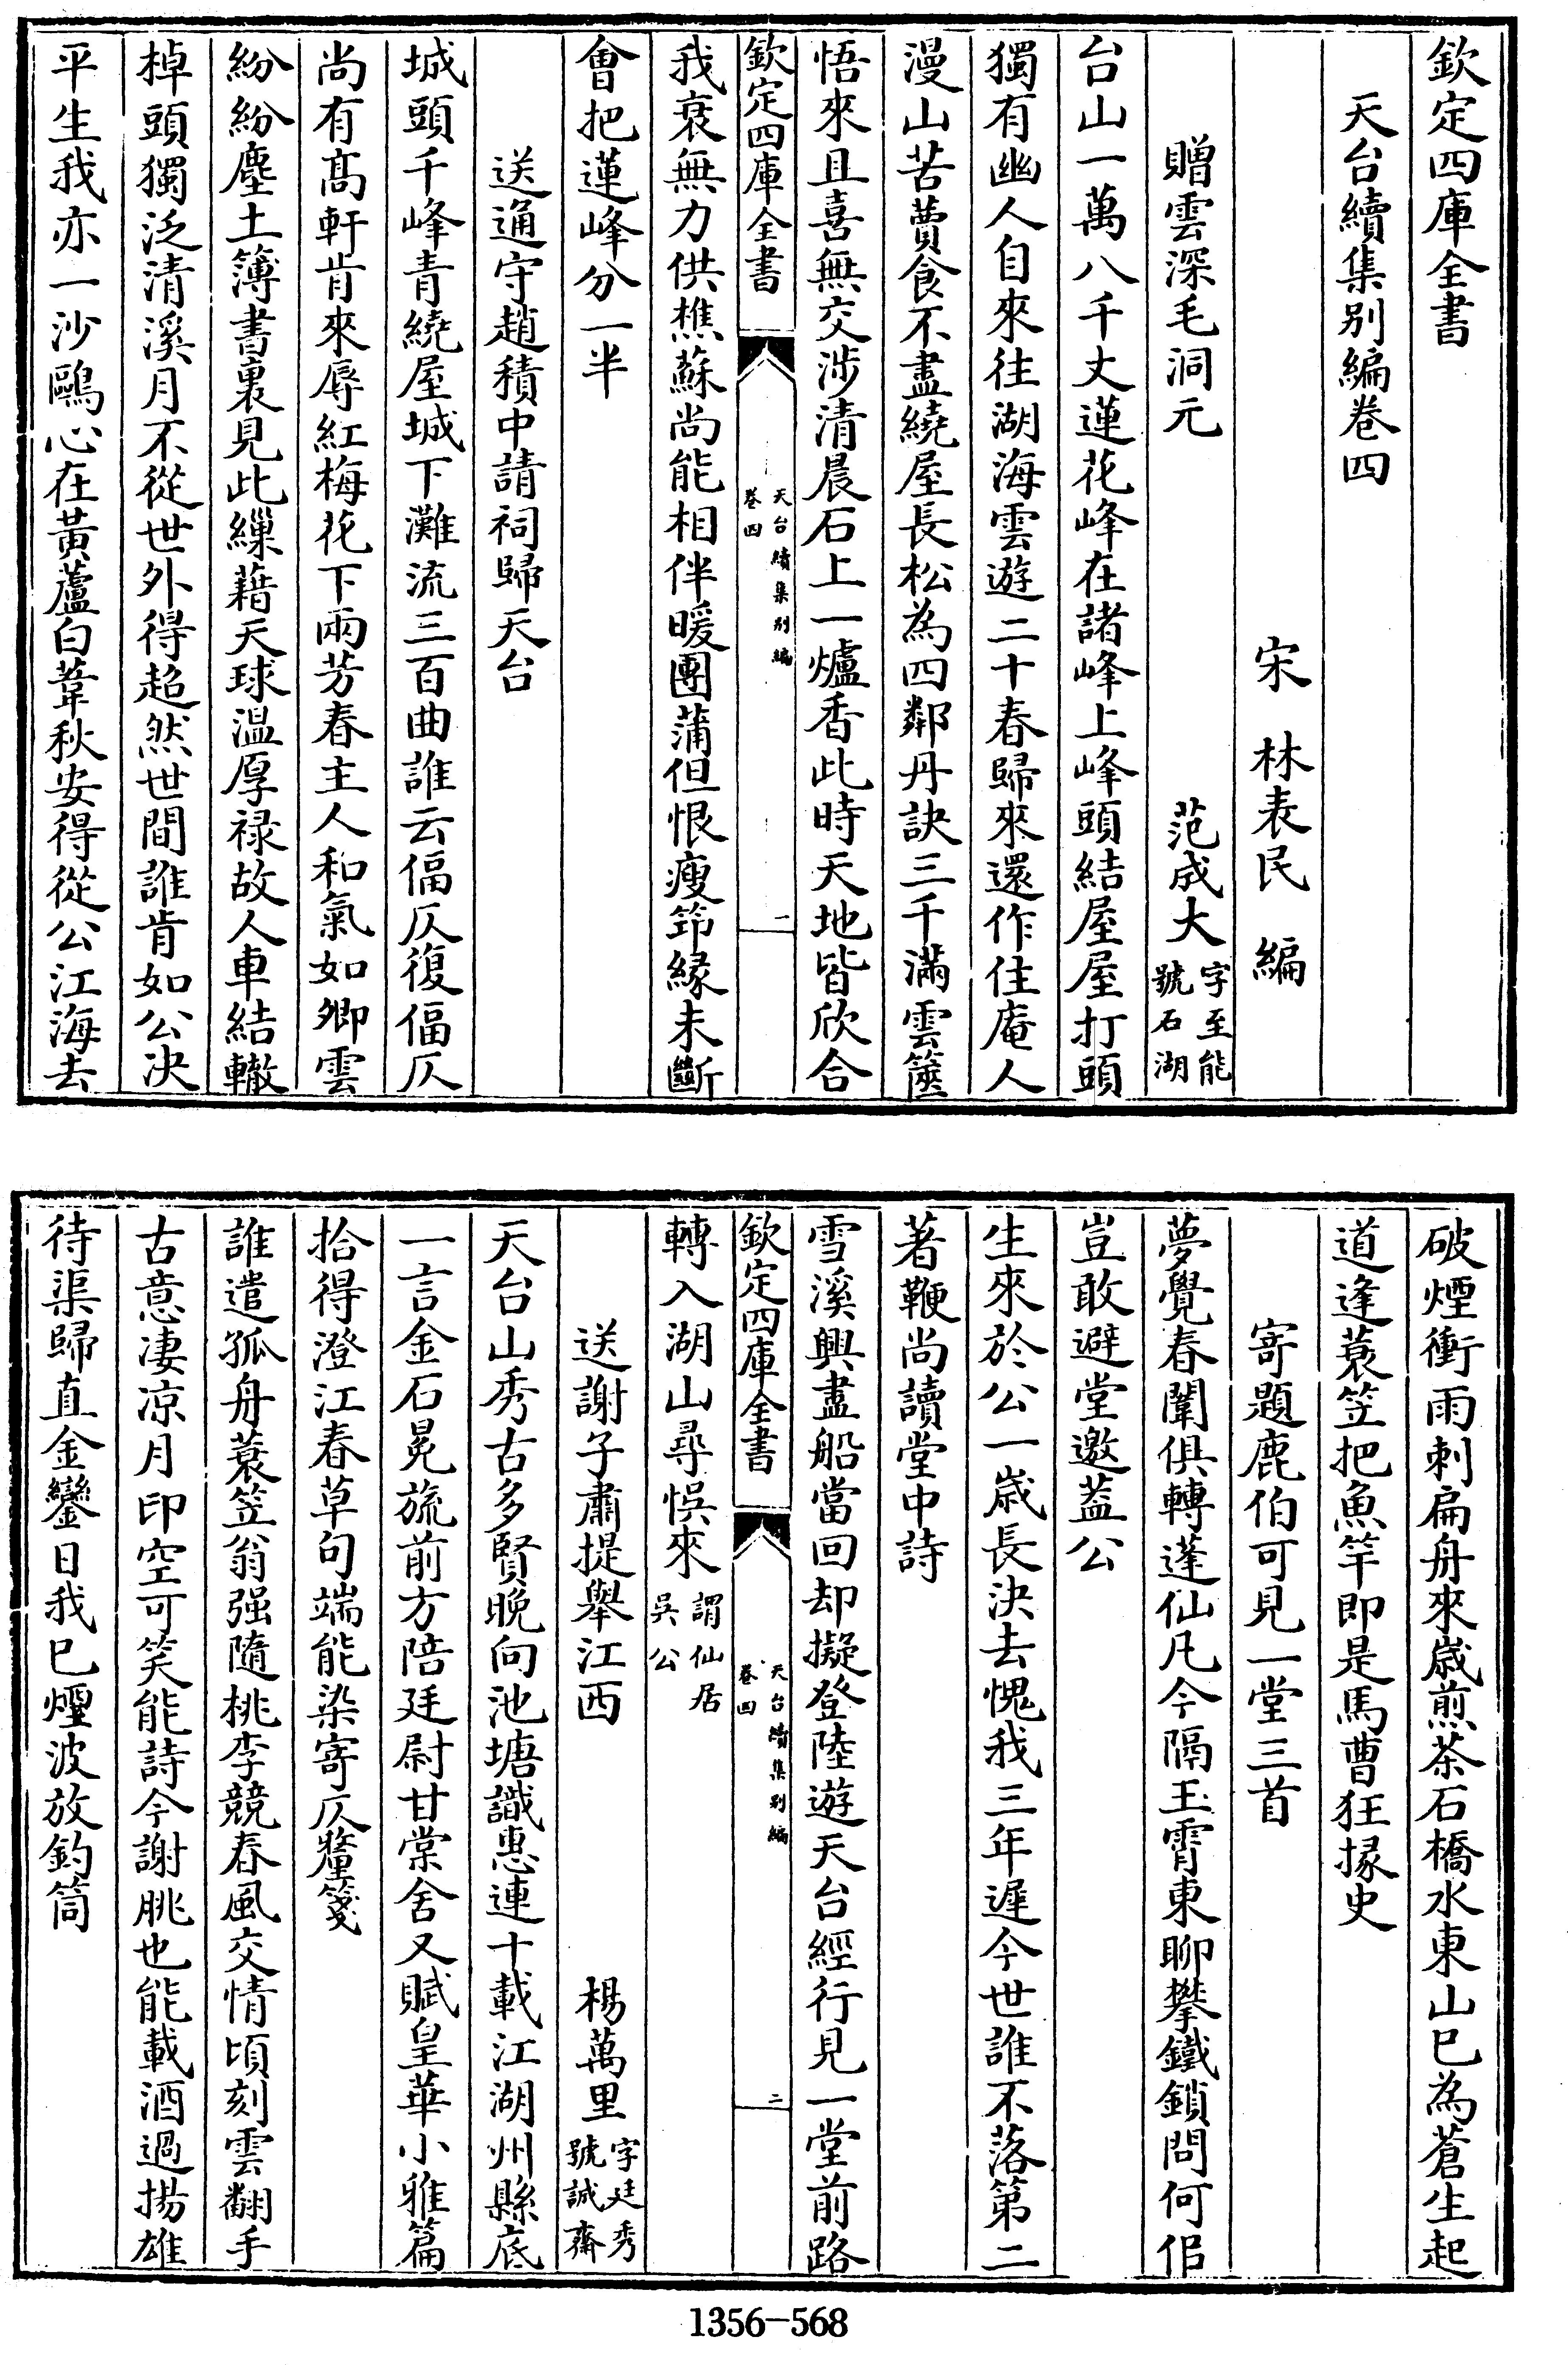 欽定四庫全書
天台續集别編卷四
宋 林表民 編
贈雲深毛洞元 范成大字至能號石湖
台山一萬八千丈蓮花峰在諸峰上峰頭結屋屋打頭
獨有幽人自來往湖海雲遊二十春歸來還作住庵人
漫山苦蕒食不盡繞屋長松為四鄰丹訣三千滿雲篋
悟來且喜無交涉清晨石上一爐香此時天地皆欣合
欽定四庫全書
天台續集别編
卷四
一
我衰無力供樵蘇尚能相伴暖團蒲但恨瘦笻縁未斷
會把蓮峰分一半
送通守趙積中請祠歸天台
城頭千峰青繞屋城下灘流三百曲誰云偪仄復偪仄
尚有髙軒肯來辱紅梅花下兩芳春主人和氣如卿雲
紛紛塵土簿書裏見此繅藉天球温厚禄故人車結轍
棹頭獨泛清溪月不從世外得超然世間誰肯如公决
平生我亦一沙鷗心在黄蘆白葦秋安得從公江海去
破煙衝雨刺扁舟來嵗煎茶石橋水東山已為蒼生起
道逢蓑笠把魚竿即是馬曹狂掾史
寄題鹿伯可見一堂三首
夢覺春闈俱轉蓬仙凡今隔玉霄東聊攀鐵鎖問何侣
豈敢避堂邀葢公
生來於公一嵗長決去愧我三年遲今世誰不落第二
著鞭尚讀堂中詩
雪溪興盡船當回却擬登陸遊天台經行見一堂前路
欽定四庫全書
天台續集别編
卷四
二
轉入湖山尋悞來謂仙居吳公
送謝子肅提舉江西 楊萬里字廷秀號誠齋
天台山秀古多賢晚向池塘識惠連十載江湖州縣底
一言金石冕旒前方陪廷尉甘棠舍又賦皇華小雅篇
拾得澄江春草句端能染寄仄釐箋
誰遣孤舟蓑笠翁强隨桃李競春風交情頃刻雲翻手
古意凄凉月印空可笑能詩今謝朓也能載酒過揚雄
待渠歸直金鑾日我已煙波放釣筒
1356-568